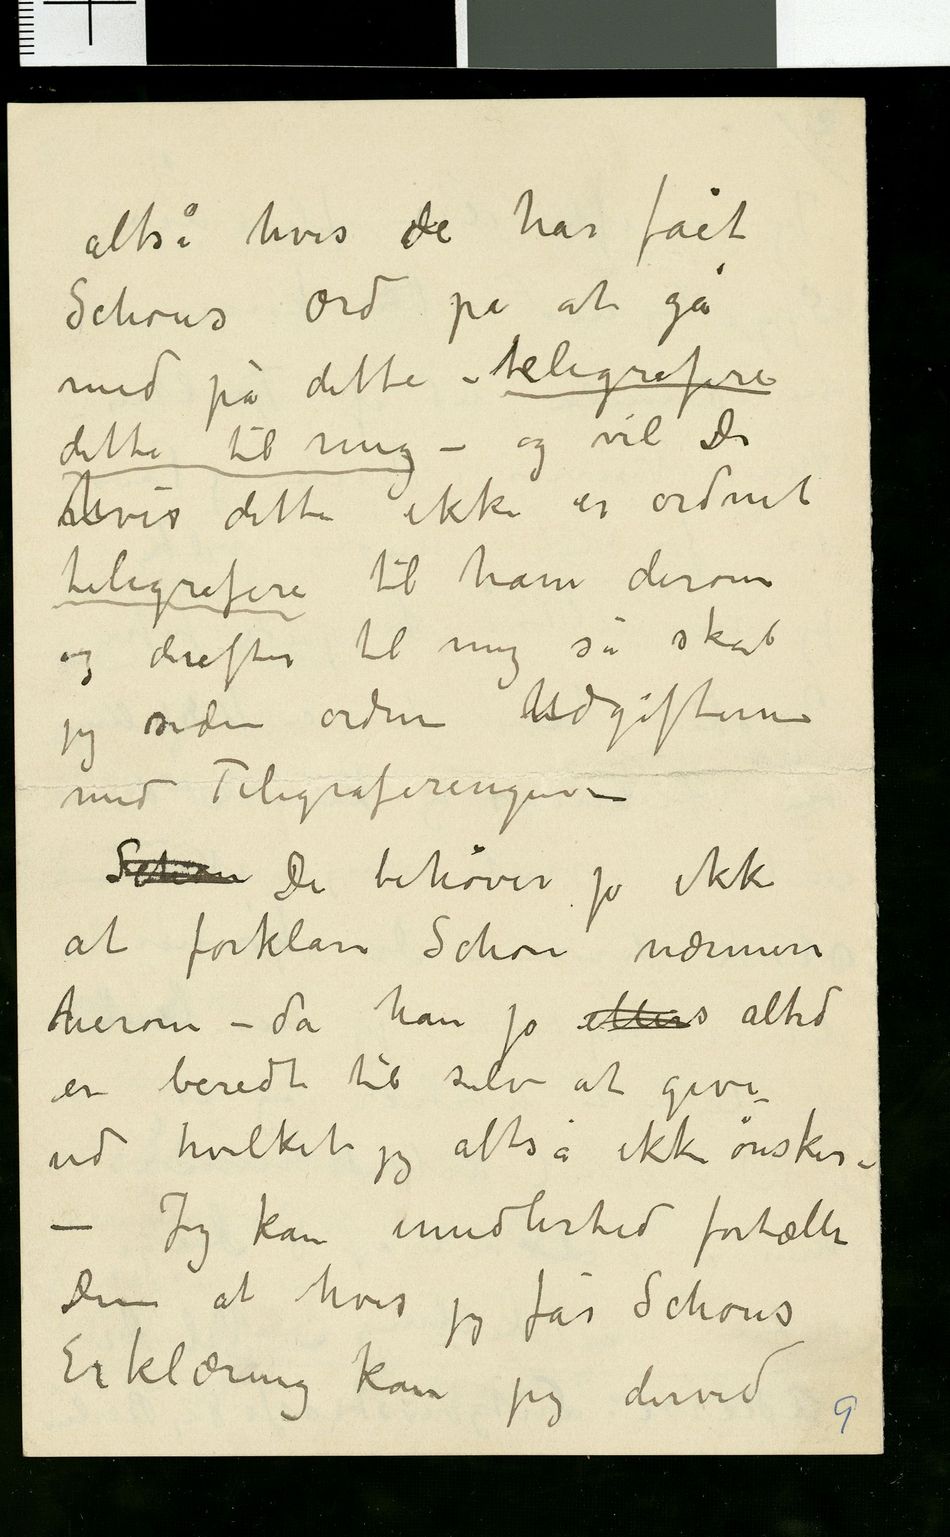 altså hvis de har fået
Schous ord på at gå
med på dette - telegrafere
dette til mig - og vil De
hvis dette ikke er ordnet
telegrafere til ham derom
og derefter til mig så skal
jeg siden ordne Udgifterne
med Telegraferingen -
Schou De behøver jo ikke
at forklare Schou nærmere
herom - da han jo ellers altid
er beredt til selv at give
ud hvilket jeg altså ikke ønsker -
- Jeg kan imidlertid fortælle
Dem at hvis jeg får Schous
Erklæring kan jeg derved
9